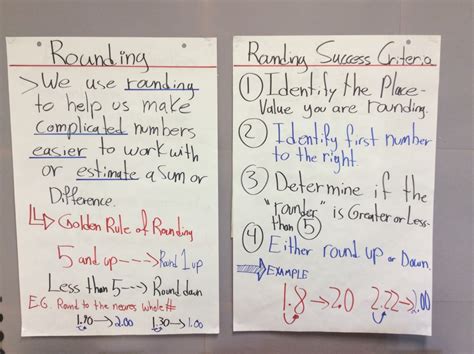 Rounding
> We use rounding
to help us make
complicated numbers
easier to work with
or estimate a sum or
Difference.
Golden Rule of Rounding
5 and up ----> Round 1 up
Less than 5 ---> Round down
E.G. Round to the neares whole #
1.90 → 2.00 1.30 → 1.00
Rounding Success Criteria
① Identify the Place-
Value you are rounding.
② Identify first number
to the right.
③ Determine if the
"rounder" is Greater or Less-
than ⑤
④ Either round up or Down.
EXAMPLE
1.8 → 2.0 2.22 → 2.00